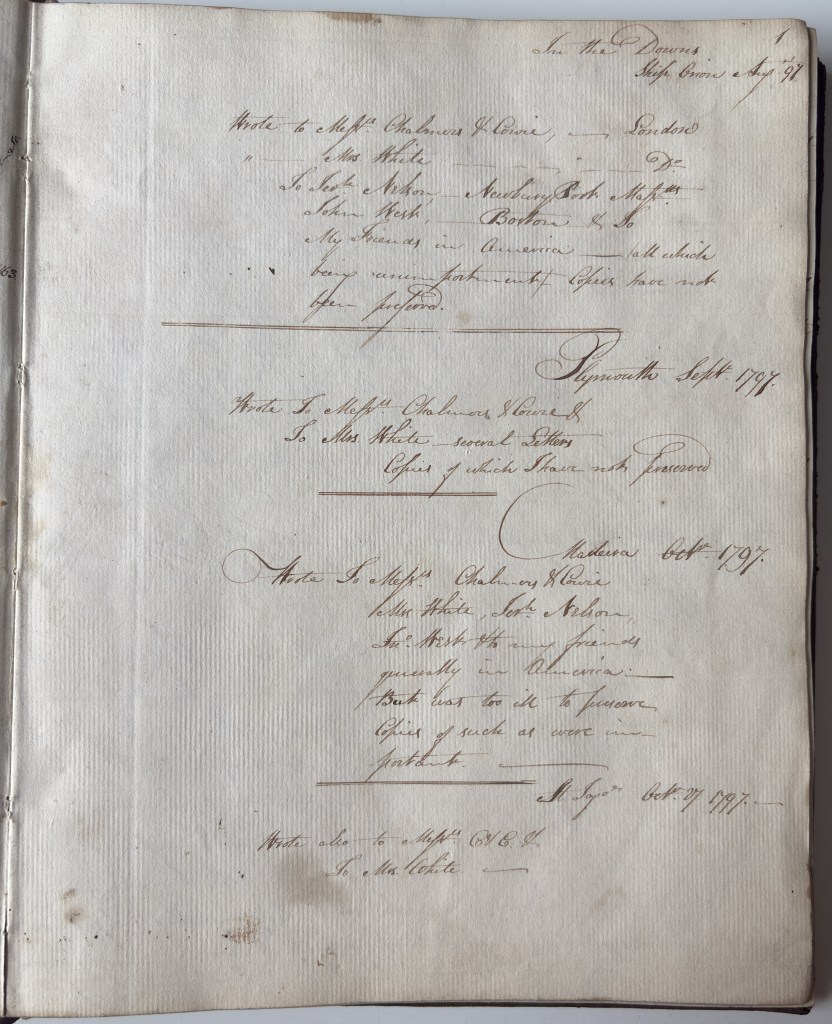 1
In the Downs
Ship Orion Augt 97
Wrote to Messrs. Chalmers & Cowie, — London
" — Mrs White — — — Do
To Jerh. Nelson, — Newbury Port Massatts
John West, — Boston & To
My Friends in America — /all which
being unimportment/ Copies have not
been preserved.
Plymouth Septr. 1797.
Wrote To Messrs Chalmers & Cowie &
To Mrs. White — several Letters
Copies of which I have not preserved
Madeira Octr. 1797.
Wrote To Messrs. Chalmers & Cowie
Mrs White, Jerh. Nelson,
Jno. West & to my friends
generally in America. —
But was too ill to preserve
Copies of such as were im-
portant. —
St Jago Octr. 27 1797. —
Wrote also to Messrs C & C. &
To Mrs. White —